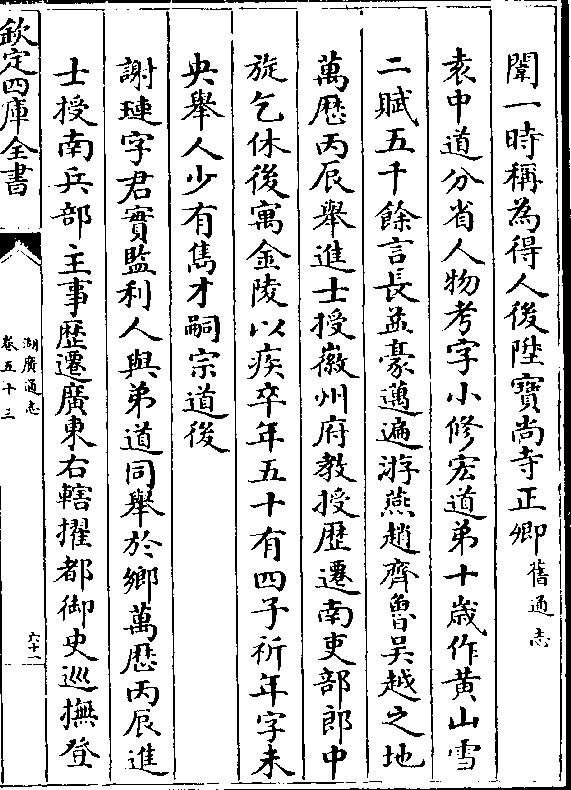 聞一時稱為得人後陞寶尚寺正卿舊通志
袁中道分省人物考字小修宏道弟十歳作黄山雪
二賦五千餘言長益豪邁遍游燕趙齊魯吴越之地
萬歴丙辰舉進士授徽州府教授歴遷南吏部郎中
旋乞休後寓金陵以疾卒年五十有四子祈年字未
央舉人少有雋才嗣宗道後
謝璉字君實監利人與弟道同舉於鄉萬歴丙辰進
士授南兵部主事歴遷廣東右轄擢都御史巡撫登
欽定四庫全書
湖廣通志
卷五十三
六十一